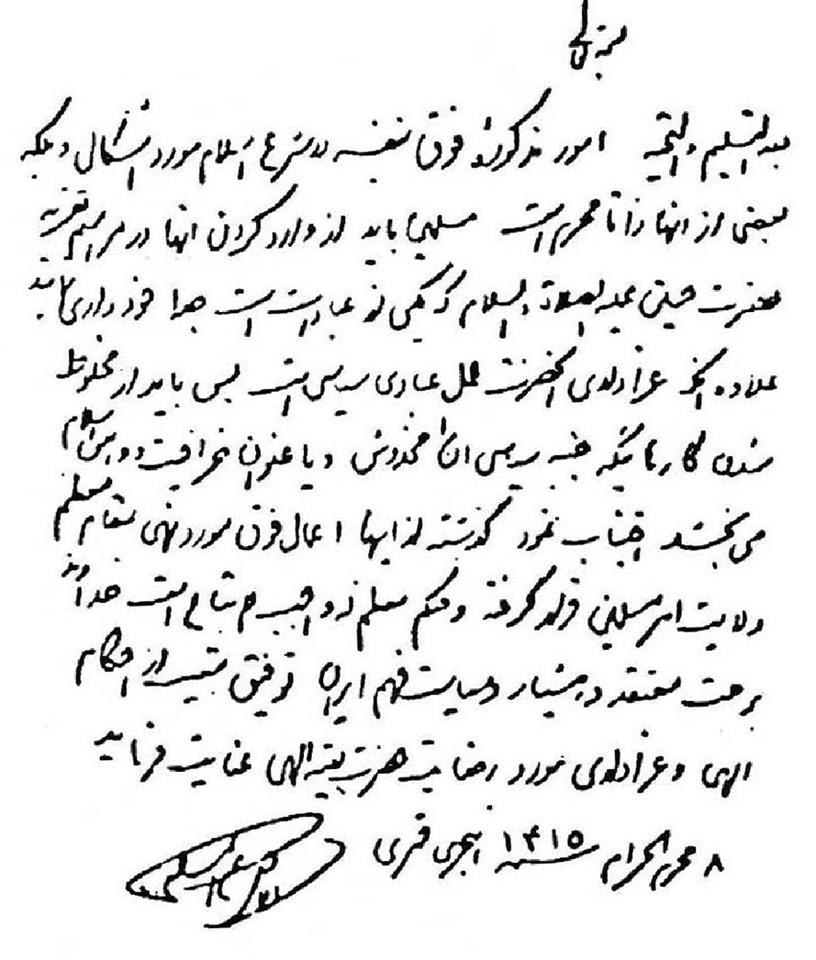 بسمه تعالی
بعد التسلیم و التحیه امور مذکوره فوق بنفسه در شرع اسلام مورد اشکال و بلکه
بعضی از آنها ذاتا محرم است مسلمین باید از وارد کردن آنها در مراسم تعزیه
حضرت حسین علیه الصلاة والسلام که یکی از عبادات است جدا خودداری نمایند
علاوه آنکه عزاداری آنحضرت عمل عبادی سیاسی است پس باید از مخلوط
شدن کارهائیکه جنبه سیاسی آنرا مخدوش و یا عنوان خرافیت و وهن اسلام
می بخشد اجتناب نمود گذشته از اینها اعمال فوق مورد نهی مقام معظم
ولایت امر مسلمین قرار گرفته و حکم معظم له واجب الاتباع است خداوند
بر امت معتقد و هشیار و سیاست فهم ایران توفیق تبعیت از احکام
الهی و عزاداری مورد رضایت حضرت بقیه الهی عنایت فرماید
۸ محرم الحرام سنه ۱۴۱۵ هجری قمری